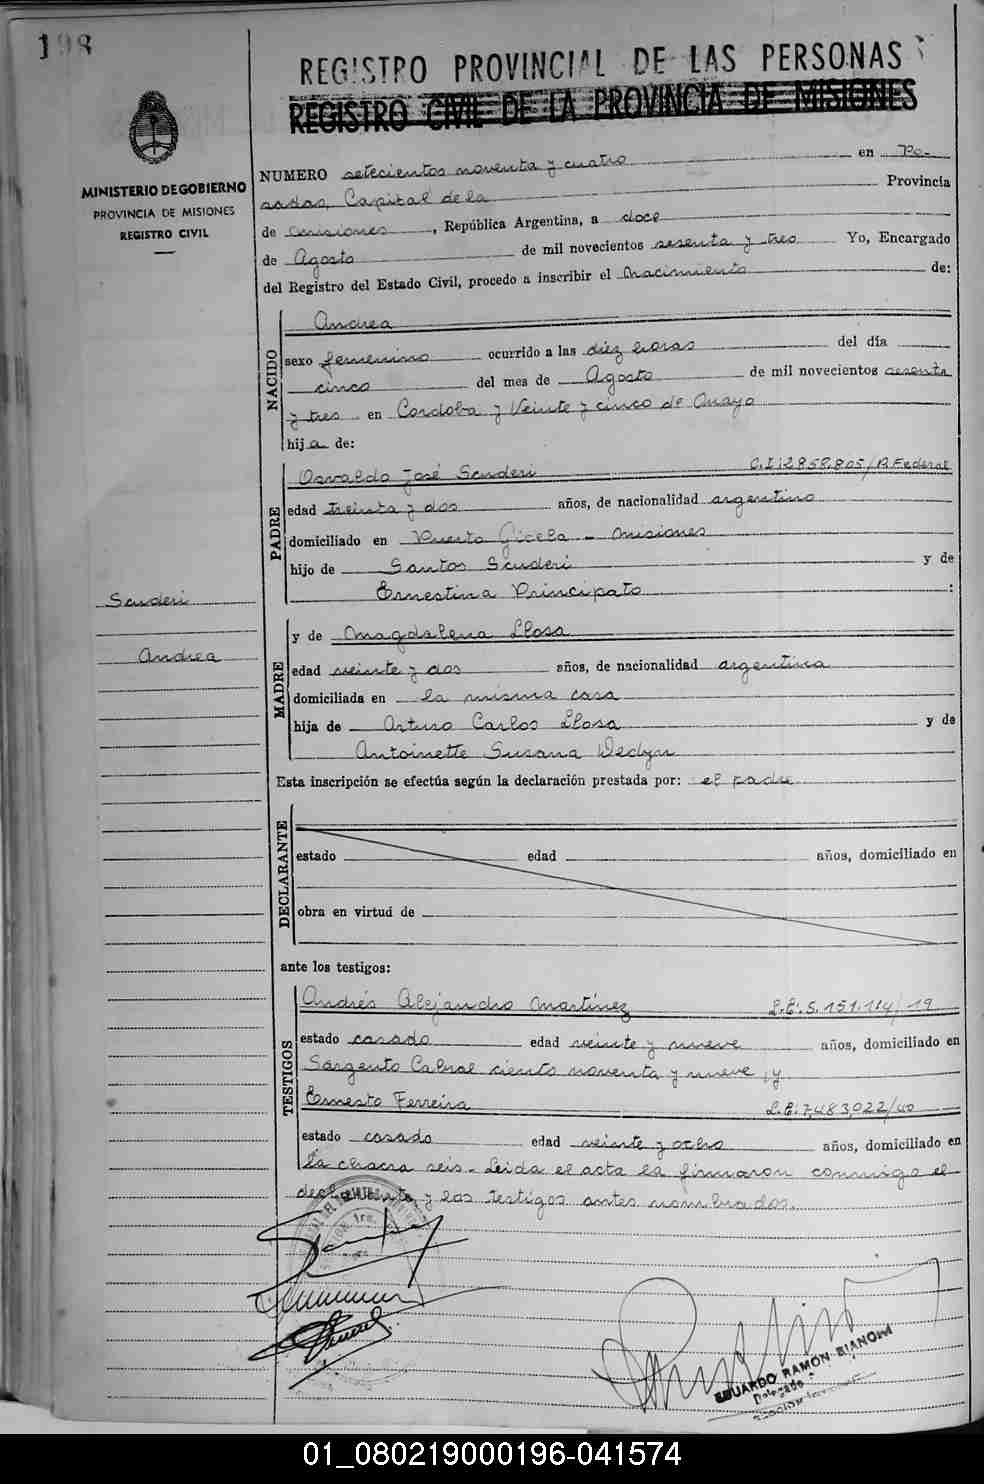 198
REGISTRO PROVINCIAL DE LAS PERSONAS
REGISTRO CIVIL DE LA PROVINCIA DE MISIONES
MINISTERIO DE GOBIERNO
PROVINCIA DE MISIONES
REGISTRO CIVIL
NUMERO setecientos noventa y cuatro en Po-
sadas, Capital de la Provincia
de Misiones, República Argentina, a doce
de Agosto de mil novecientos sesenta y tres Yo, Encargado
del Registro del Estado Civil, procedo a inscribir el Nacimiento de:
NACIDO
Andrea
sexo femenino ocurrido a las diez horas del día
cinco del mes de Agosto de mil novecientos sesenta
y tres en Cordoba y Veinte y cinco de Mayo
hija de:
PADRE
Osvaldo José Scuderi C.I. 2.858.805/P. Federal
edad treinta y dos años, de nacionalidad argentino
domiciliado en Puerto Gisela - Misiones
hijo de Santos Scuderi y de
Ernestina Principato :
Scuderi
Andrea
MADRE
y de Magdalena Llosa
edad veinte y dos años, de nacionalidad argentina
domiciliada en la misma casa
hija de Arturo Carlos Llosa y de
Antoinette Susana Wedyn
Esta inscripción se efectúa según la declaración prestada por: el padre
DECLARANTE
estado edad años, domiciliado en
obra en virtud de
ante los testigos:
TESTIGOS
Andrés Alejandro Martínez L.E. 5.151.114/19
estado casado edad veinte y nueve años, domiciliado en
Sargento Cabral ciento noventa y nueve, y
Ernesto Ferreira L.E. 7.483.022/40
estado casado edad veinte y ocho años, domiciliado en
la chacra seis.- Leida el acta la firmaron conmigo el
declarante, y los testigos antes nombrados.
EDUARDO RAMON BIANCHI
Delegado
01_080219000196-041574